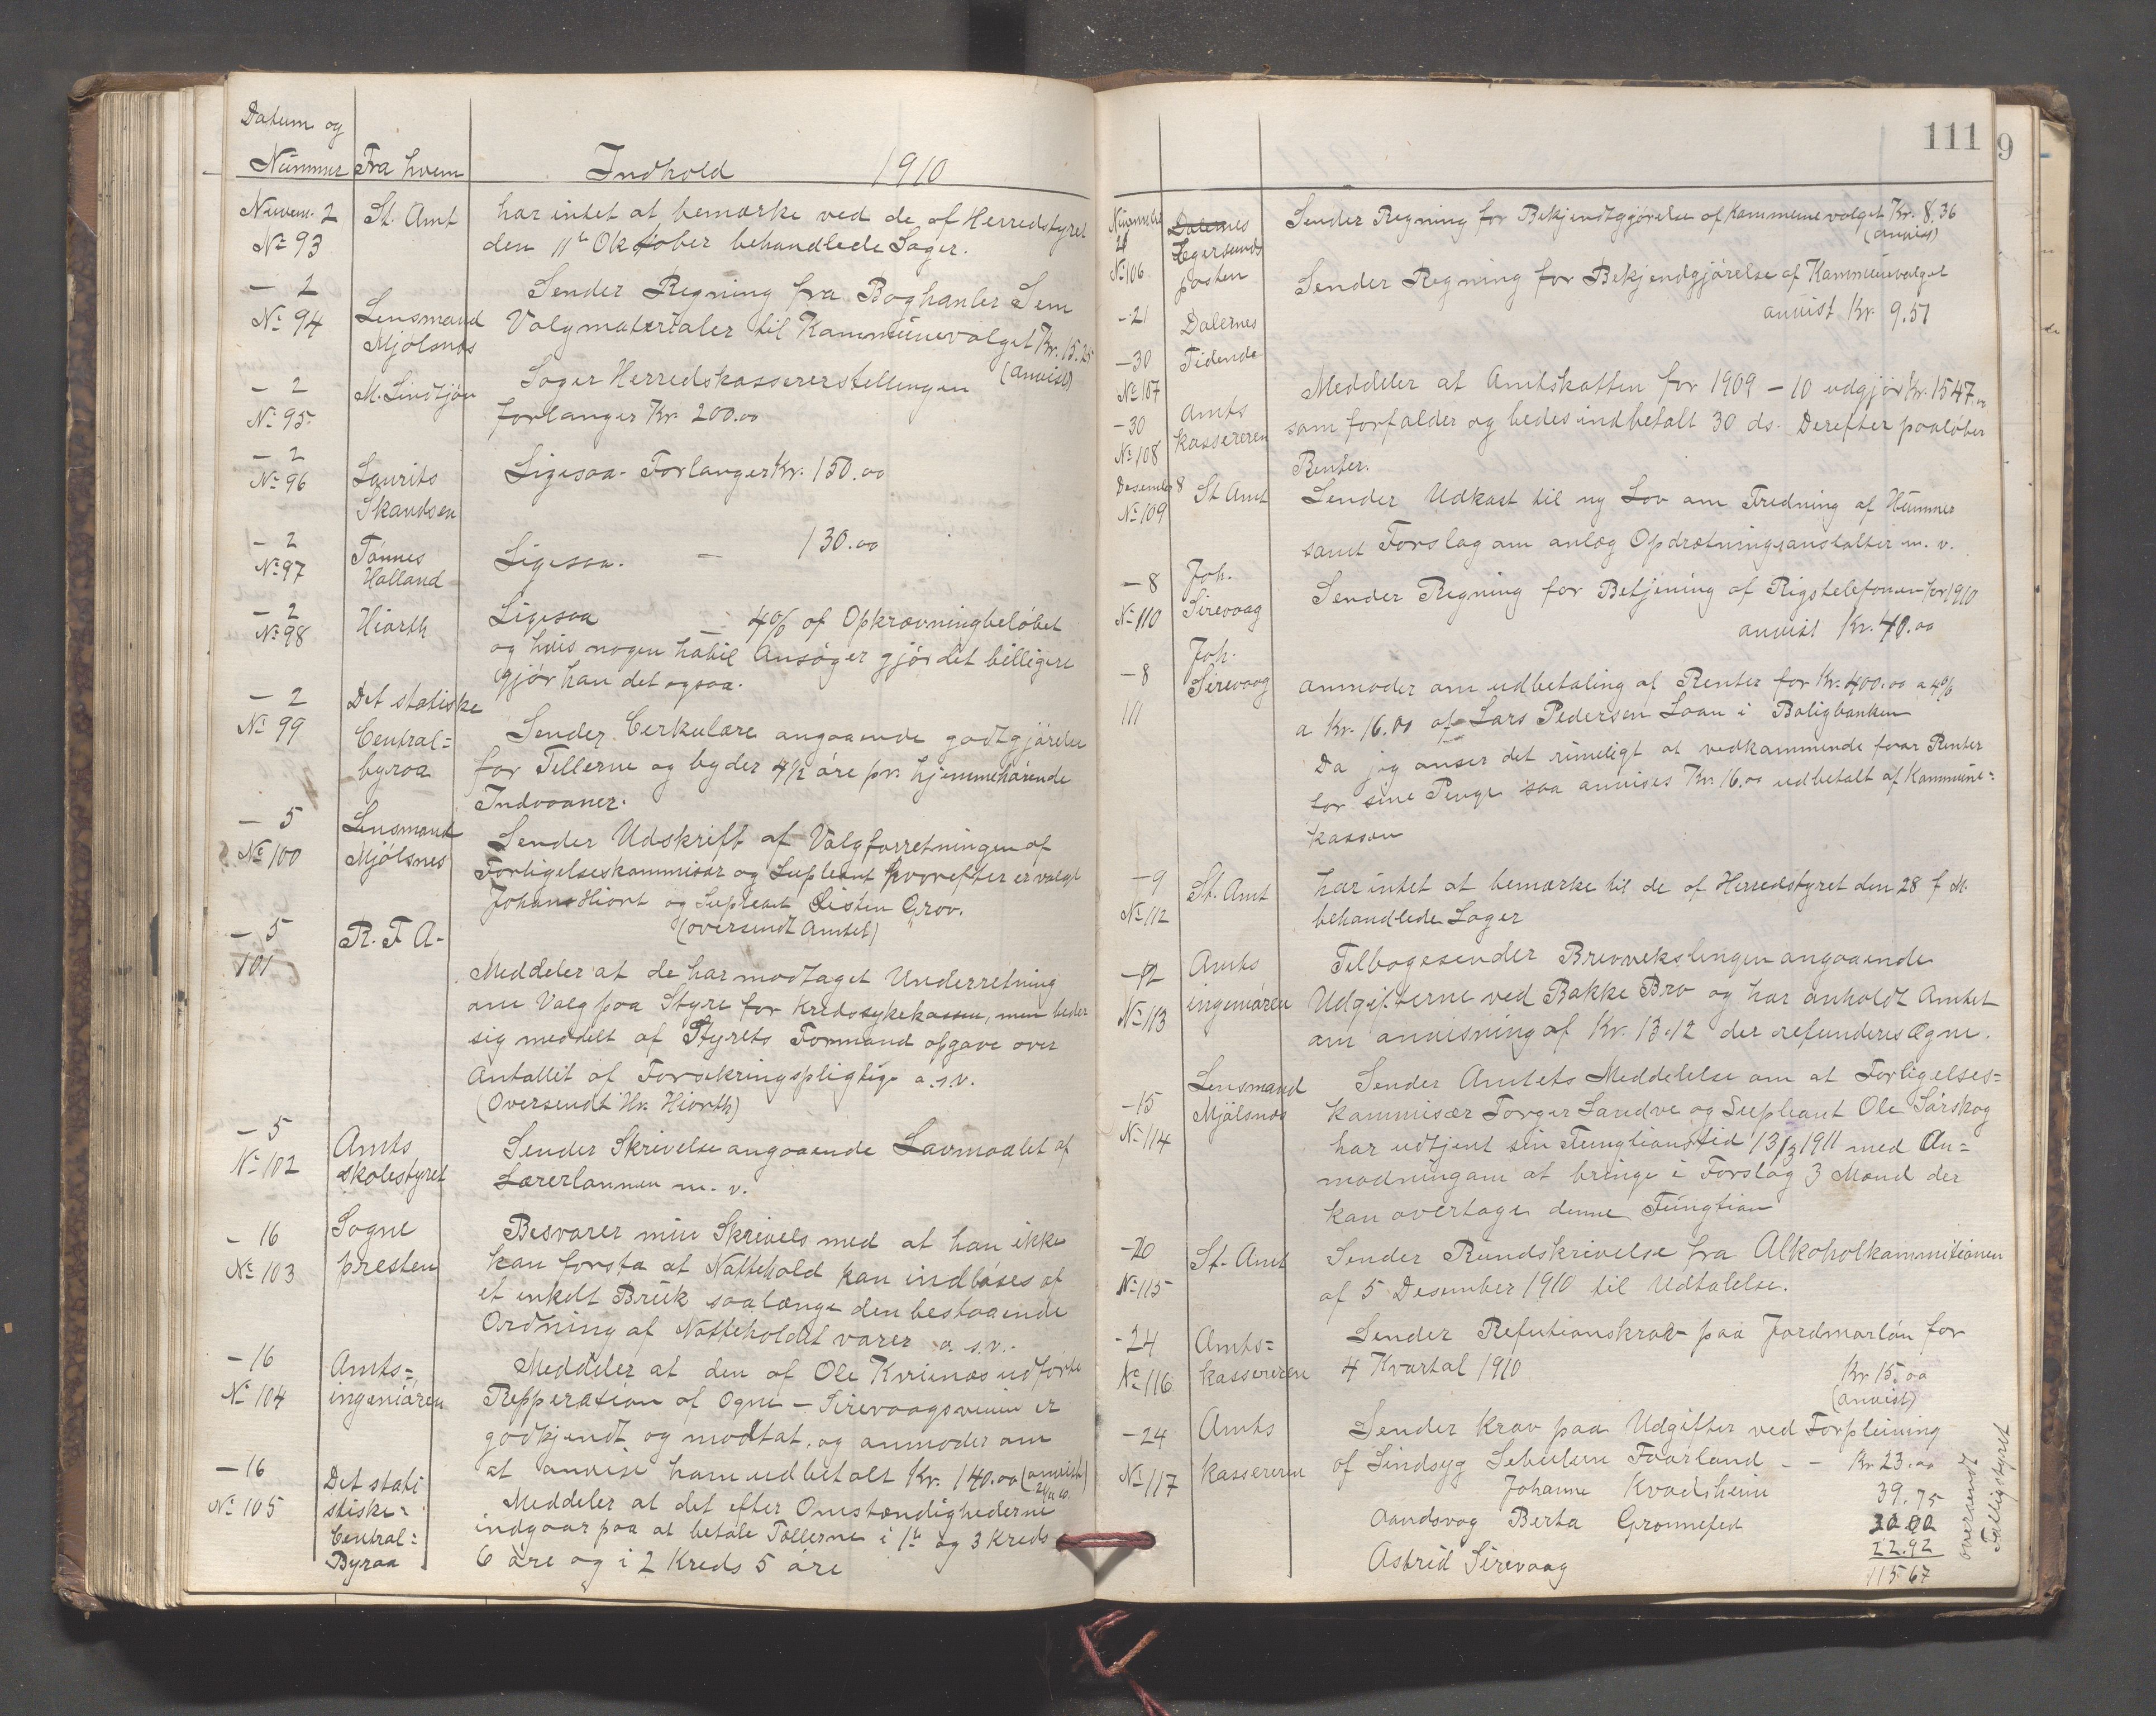 Datum og
Nummer Fra hvem Indhold 1910
Novem. 2 St. Amt har intet at bemærke ved de af Herredstyret
No 93 den 11te Oktober behandlede Sager.
- 2 Sender Regning fra Boghanler Sem
No 94 Lensmand Valgmaterialer til Kommunevalget Kr. 15.25
Mjølsnes (anvist)
- 2 M. Lindtjøn Søger Herredskassererstellingen
No 95 forlanger Kr. 200.00
- 2
No 96 Laurits Ligesaa. Forlanger Kr. 150.00
Skandsen
- 2 Tønnes Ligesaa. - 130.00
No 97 Holland
- 2 Hiorth Ligesaa - 4% af Opkrævningbeløbet
No 98 og hvis nogen habil Ansøger gjør det billigere
gjør han det ogsaa.
- 2 Det statiske
No 99 Central= Sender Cerkulære angaaende godtgjørelse
byraa for Tellerne og byder 4 1/2 øre pr. hjemmehørende
Indvaaner.
- 5 Lensmand Sender Udskrift af Valgforretningen af
No 100 Mjølsnes Forligelseskommisær og Supleant hvorefter er valgt
Johan Hiort og Supleant Sisten Grov.
(oversendt Amtet)
- 5 R. F A-
101 Meddeler at de har modtaget Underretning
om Valg paa Styre for Kredssykekassen, men beder
sig meddelt af Styrets Formand opgave over
Antallet af Forsikringspligtige o.s.v.
(Oversendt Hr. Hiorth)
- 5 Amts Sender Skrivelse angaaende Lavmaalet af
No 102 skolestyret Lærerlønnen m. v.
- 16 Sogne Besvarer min Skrivels med at han ikke
No 103 presten kan forsta at Nattehold kan indløses af
et enkelt Bruk saalænge den bestaaende
Ordning af Natteholdet varer o. s.v.
- 16 Amts= Meddeler at den af Ole Kvinnes udførte
No 104 ingeniøren Repperation af Ogne - Sirevaagsveien er
godkjendt og modtat, og anmoder om
at anvise ham udbetalt Kr. 140.00 (anvist)
- 16 Det stati Meddeler at det efter Omstændighederne
No 105 stiske= indgaar paa at betale Tællerne i 1te og 3 Kreds
Central= 6 øre og i 2 Kreds 5 øre
Byraa
111 9
November Dalernes Sender Regning for Bekjendtgjørelse af Kommunevalget Kr. 8,36
21 Egersunds (anvist)
No 106 posten
Sender Regning for Bekjendgjørelse af Kommunevalget
- 21 Dalernes anvist Kr. 9.51
- 30 Tidende
No 107 Meddeler at Amtskatten for 1909 - 10 udgjør Kr. 1547.00
- 30 Amts som forfalder og bedes indbetalt 30 ds. Derefter paaløber
No 108 kassereren Renter.
Desember 8 St Amt Sender Udkast til ny Lov om Fredning af Hummer
No 109 samt Forslag om anlæg Opdrætningsanstalter m. v.
- 8 Joh. Sender Regning for Betjening af Rigstelefonen for 1910
No 110 Sirevaag anvist Kr. 40.00
- 8 Joh.
111 Sirevaag anmoder om udbetaling af Renter for Kr. 400.00 a 4%
a Kr. 16.00 af Lars Pedersen Laan i Boligbanken
Da jeg anser det rimeligt at vedkommende faar Renter
for sine Penge saa anvises Kr. 16.00 udbetalt af Kommune=
kassen
- 9 St. Amt har intet at bemærke til de af Herredstyret den 28 f M.
No 112 behandlede Sager
- 12 Amts Tilbagesender Brevvekslingen angaaende
No 113 ingeniøren Udgifterne ved Bakke Bro og har anholdt Amtet
om anvisning af Kr. 13.12 der refunderes Ogne.
- 15 Lensmand Sender Amtets Meddelelse om at Forligelses=
No 114 Mjølsnes kommisær Torger Sandve og Supleant Ole Sørskog
har udtjent sin Fungtionstid 13/3 1911 med An=
modningom at bringe i Forslag 3 Mænd der
kan overtage denne Fungtion
- 20 St. Amt Sender Rundskrivelse fra Alkoholkommitionen
No 115 af 5 Desember 1910 til Udtalelse.
- 24 Amts= Sender Refutionskrav paa Jordmorløn for
No 116 kassereren 4 Kvartal 1910 Kr 15.00
(anvist)
- 24 Amts Sender krav paa Udgifter ved Forpleining
No 117 kassereren af Sindsyg Faarland - - Kr 23.00
Johanne Kvadsheim 39.75
Aandsvag Berta Grønnefed 30.00
Astrid Sirevaag 22.92
115.67
oversendt
Fattigstyret